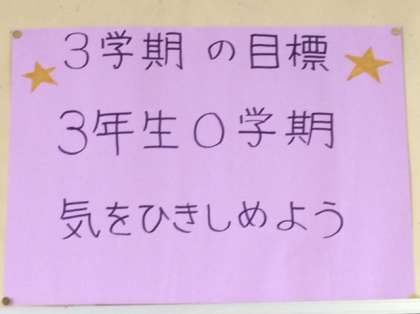 3学期の目標
3年生0学期
気をひきしめよう